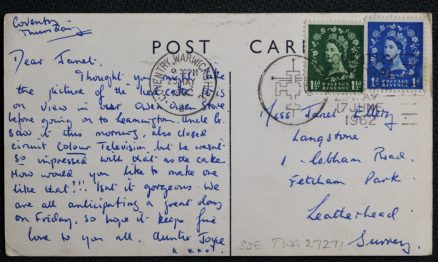 Coventry
Thursday
POST CARD
Dear Janet.
Thought you might like
the picture of the
on view in our Owen Owen Store
before going on to Leamington. Uncle
saw it this morning, also closed
circuit Colour Television, but he wasn't
so impressed with that as the cake.
How would you like to make one
like that!!! Isn't it gorgeous. We
are all anticipating a great day
on Friday. so hope it keeps fine
love to you all. Auntie Joyce
COVENTRY. WARWICKSHIRE
1962
1½d REVENUE 1½d
1d REVENUE 1d
17 JUNE
1962
Miss Janet Ellery
Langstone
1 Cobham Road.
Fetcham Park.
Leatherhead
Surrey.